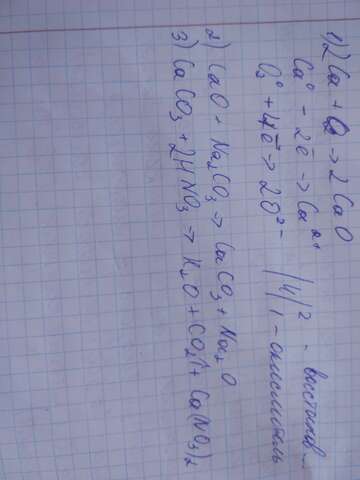 1) 2Ca + O₂ → 2CaO
Ca⁰ - 2ē → Ca²⁺ |4|2 - восстанов...
O₂⁰ + 4ē → 2O²⁻ |1 - окислитель
2) CaO + Na₂CO₃ → CaCO₃ + Na₂O
3) CaCO₃ + 2HNO₃ → H₂O + CO₂↑ + Ca(NO₃)₂